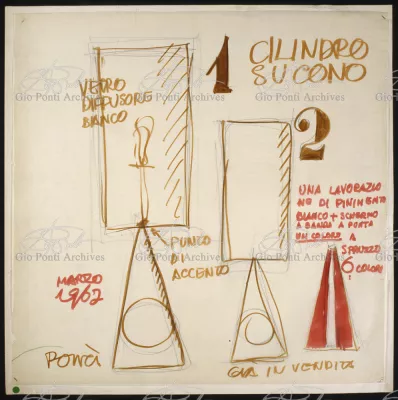 1
CILINDRO
SU CONO
VETRO
DIFFUSORE
BIANCO
2
UNA LAVORAZIO
NE DI
BIANCO + SCHERMO
A BANDA A
UN COLORE A
SPRUZZO
6 COLORI
PUNTO
DI
ACCENTO
MARZO
1967
Ponti
GIA IN VENDITA
Gio Ponti Archives